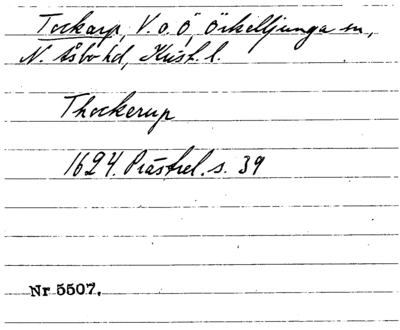 Tockarp, V. o. Ö, Örkelljunga sn,
N. Åsbo hd, Krist. l.
Thockerup
1624. Prästrel. s. 39
Nr 5507.